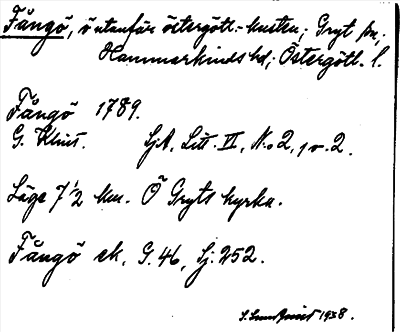 Fångö, ö utanför östergötl.-kusten, Gryt sn,
Hammarkinds hd, Östergötl. l.
Fångö 1789.
G. Klint. SjA, Litt. II, No 2, 1 v. 2.
Läge 7 1/2 km. Ö Gryts kyrka.
Fångö ek. G. 46, Sj. 252.
1938.